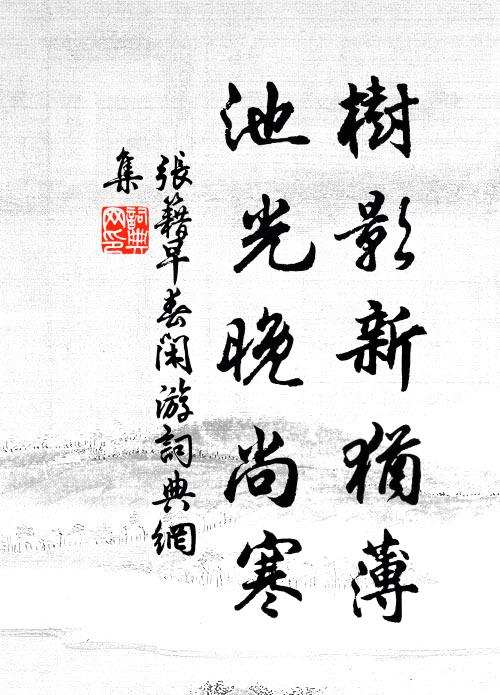 樹影新猶薄
池光晚尚寒
張籍早春閑游詞典網
集
詞典
网印